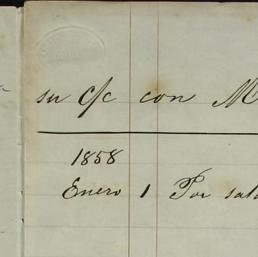 su c/c con M
1858
Enero 1 Por sal